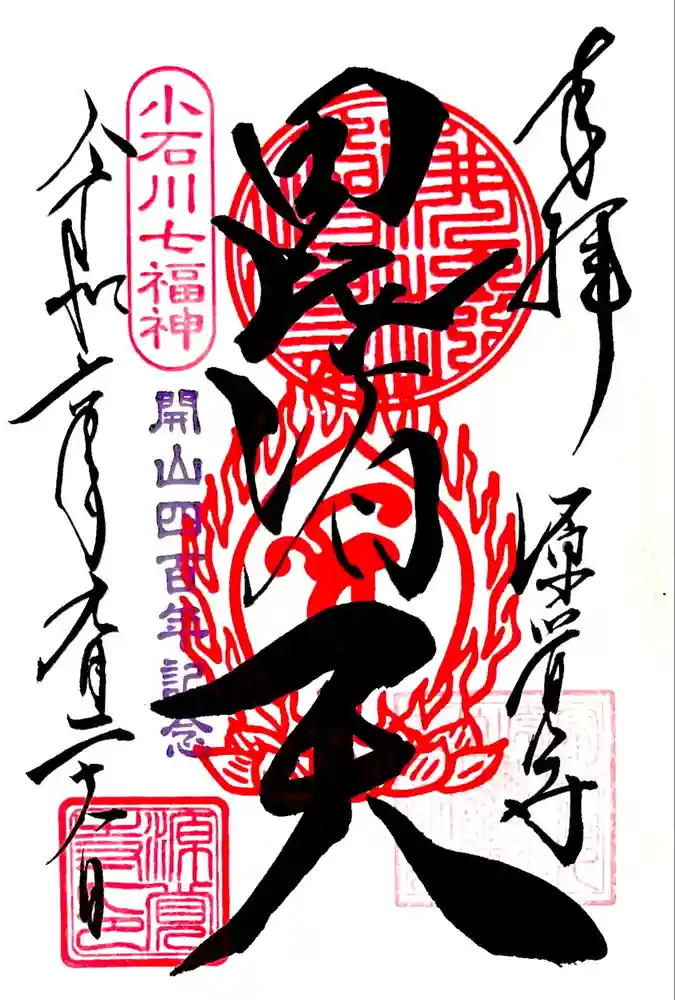 奉拝
源覚寺
毘沙門天
小石川七福神
開山四百年記念
令和六年九月二十八日
源覺
寺印